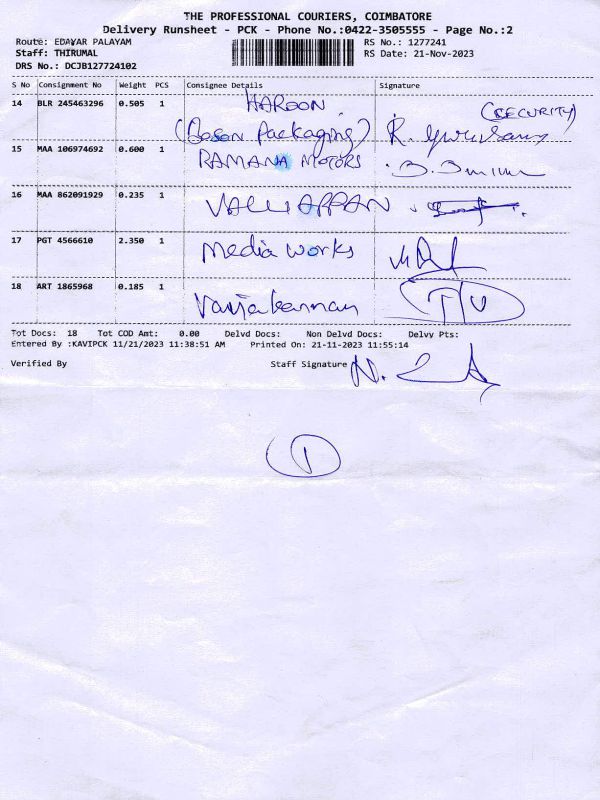 THE PROFESSIONAL COURIERS, COIMBATORE
Delivery Runsheet - PCK - Phone No.:0422-3505555 - Page No.:2
Route: EDAYAR PALAYAM RS No.: 1277241
Staff: THIRUMAL RS Date: 21-Nov-2023
DRS No.: DCJB127724102
S No Consignment No Weight PCS Consignee Details Signature
14 BLR 245463296 0.505 1 HAROON (SECURITY)
(Boson Packaging) R.
15 MAA 106974692 0.600 1 RAMANA MOTORS
16 MAA 862091929 0.235 1 VALLIAPPAN
17 PGT 4566610 2.350 1 Media works
18 ART 1865968 0.185 1
Tot Docs: 18 Tot COD Amt: 0.00 Delvd Docs: Non Delvd Docs: Delvy Pts:
Entered By :KAVIPCK 11/21/2023 11:38:51 AM Printed On: 21-11-2023 11:55:14
Verified By Staff Signature
1